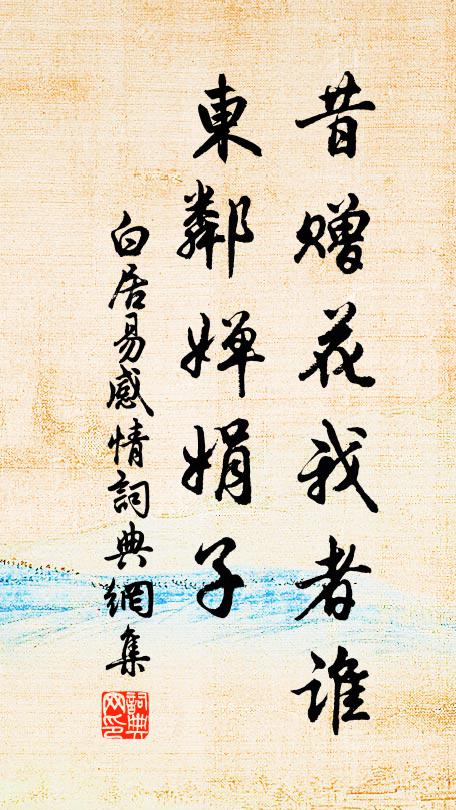 昔贈花我者誰
東鄰嬋娟子
白居易感情詞典網集
詞典
网印